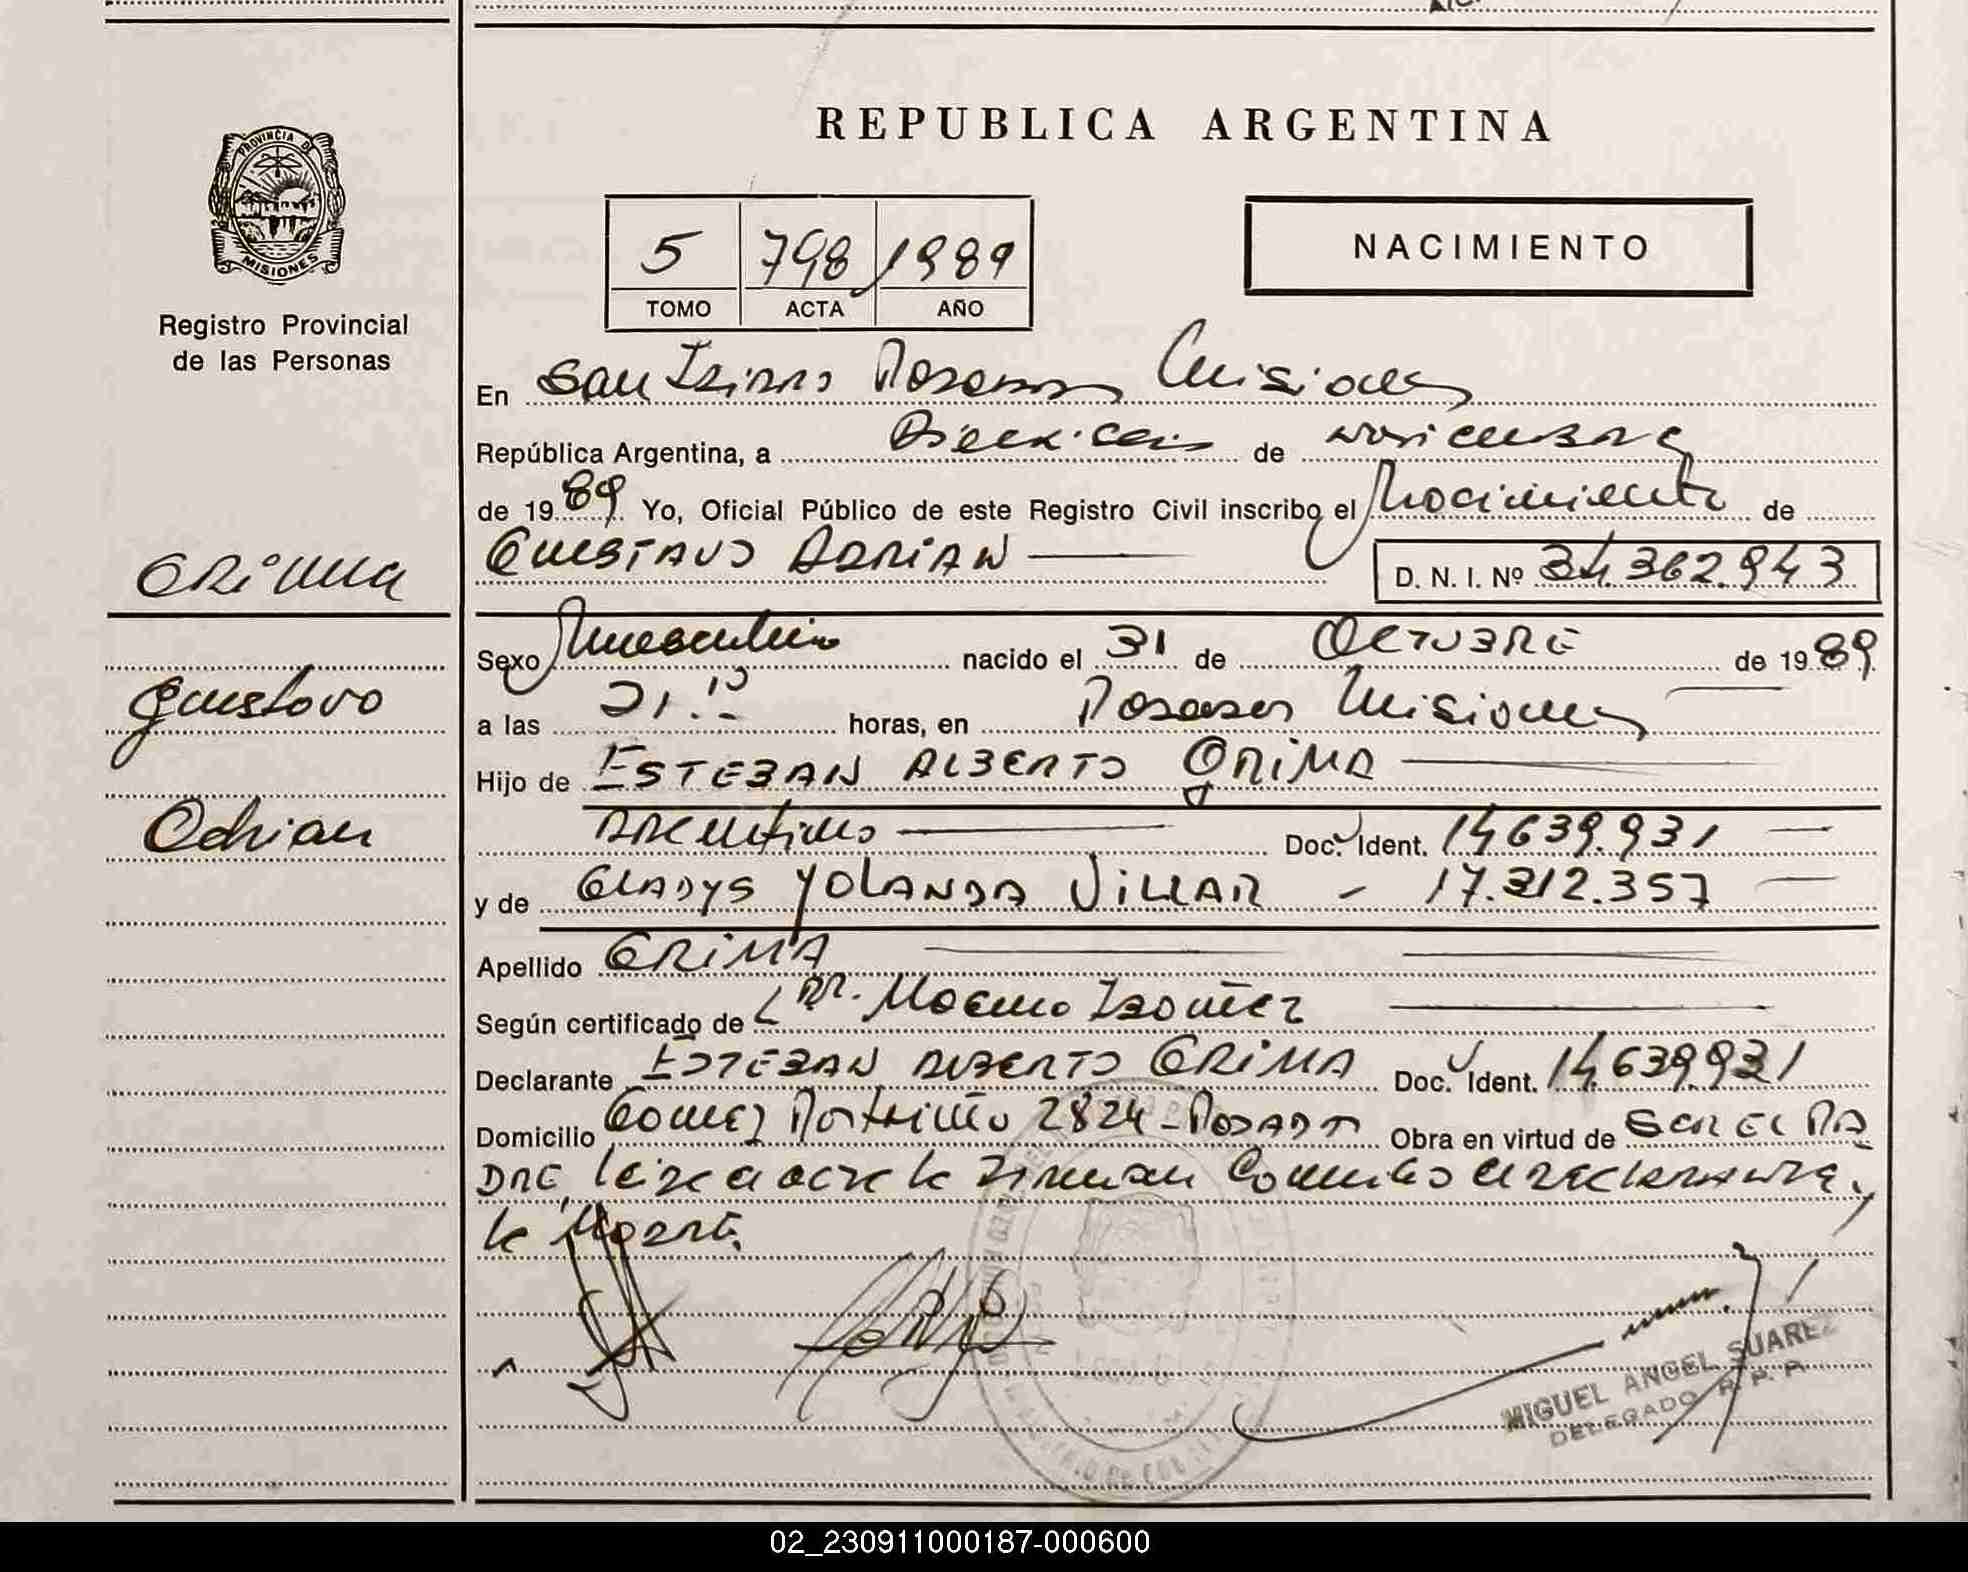 REPUBLICA ARGENTINA
PROVINCIA DE
MISIONES
Registro Provincial
de las Personas
5 798 1989
TOMO ACTA AÑO
NACIMIENTO
En San Isidro Posadas Misiones
República Argentina, a Dieciseis de noviembre
de 1989 Yo, Oficial Público de este Registro Civil inscribo el Nacimiento de
GUSTAVO ADRIAN
D. N. I. Nº 34.362.943
Grima
Gustavo
Adrian
Sexo Masculino nacido el 31 de OCTUBRE de 1989
a las 21. horas, en Posadas Misiones
Hijo de ESTEBAN ALBERTO GRIMA
Argentino Doc. Ident. 14639.931
y de GLADYS YOLANDA VILLAR - 17.312.357
Apellido GRIMA
Según certificado de Dr.
Declarante ESTEBAN ALBERTO GRIMA Doc. Ident. 14.639.931
Domicilio Gomez 2824 - Posadas Obra en virtud de SER EL PA
DRE, Leida el acta la firman Conmigo el declarante y
la
MIGUEL ANGEL SUAREZ
DELEGADO R. P. P.
02_230911000187-000600